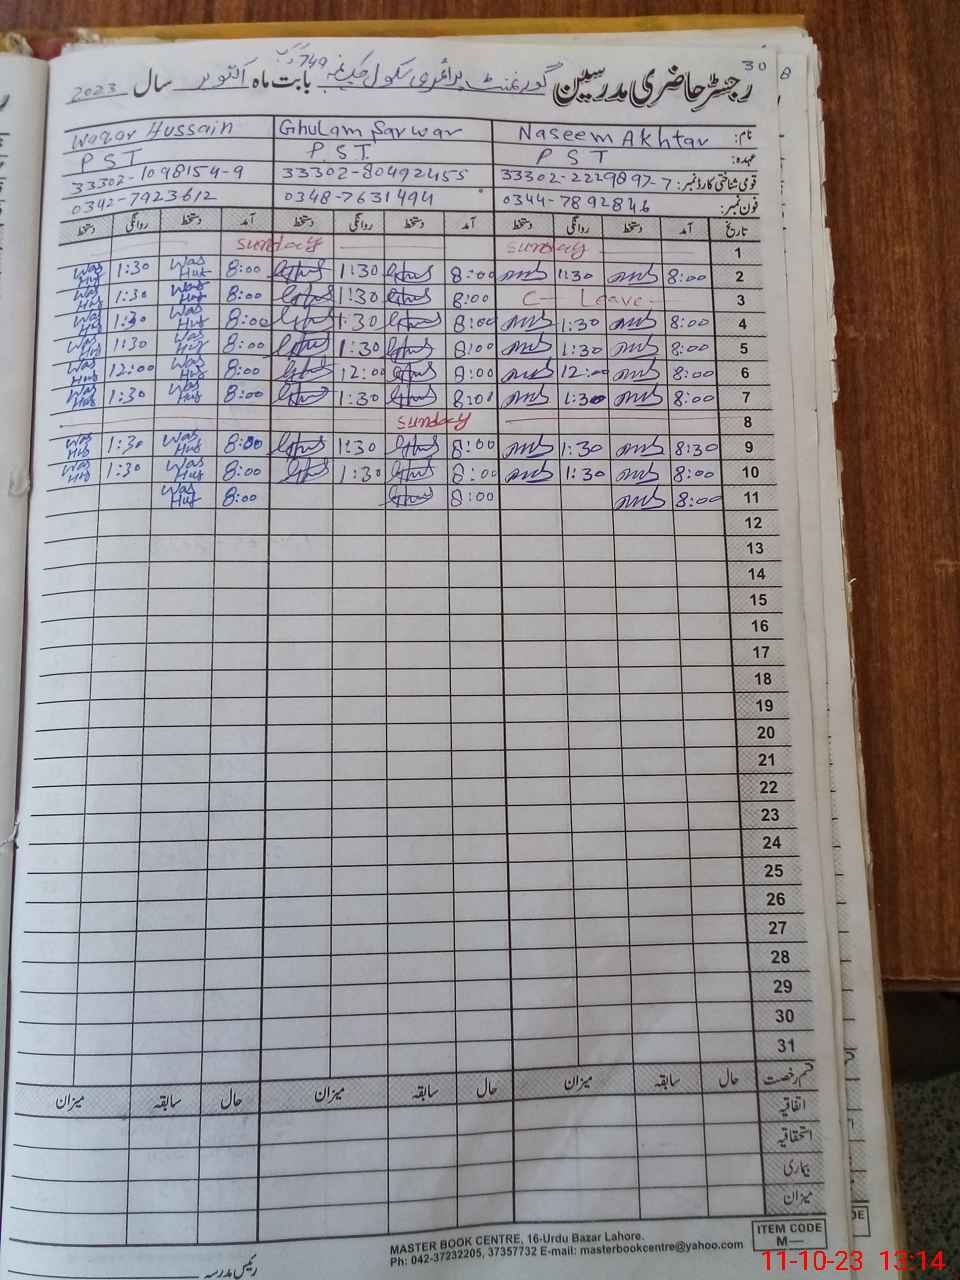 30
رجسٹر حاضری مدرسین گورنمنٹ پرائمری سکول چک نمبر 749 گ ب بابت ماہ اکتوبر سال 2023
نام: Naseem Akhtar Ghulam Sarwar Waqar Hussain
عہدہ: P S T P.S.T. P S T
قومی شناختی کارڈ نمبر: 33302-2229897-7 33302-80492455 33302-1098154-9
فون نمبر: 0344-7892846 0348-7631494 0342-7923612
تاریخ آمد دستخط روانگی دستخط آمد دستخط روانگی دستخط آمد دستخط روانگی دستخط
1 Sunday Sunday
2 8:00 1:30 8:00 1:30 8:00 Was Hus 1:30 Was Hus
3 C- Leave 8:00 1:30 8:00 Was Hus 1:30 Was Hus
4 8:00 1:30 8:00 1:30 8:00 Was Hus 1:30 Was Hus
5 8:00 1:30 8:00 1:30 8:00 Was Hus 1:30 Was Hus
6 8:00 12:00 8:00 12:00 8:00 Was Hus 12:00 Was Hus
7 8:00 1:30 8:01 1:30 8:00 Was Hus 1:30 Was Hus
8 Sunday
9 8:30 1:30 8:00 1:30 8:00 Was Hus 1:30 Was Hus
10 8:00 1:30 8:00 1:30 8:00 Was Hus 1:30 Was Hus
11 8:00 8:00 8:00 Was Hus
12
13
14
15
16
17
18
19
20
21
22
23
24
25
26
27
28
29
30
31
قسم رخصت حال سابقہ میزان حال سابقہ میزان حال سابقہ میزان
اتفاقیہ
استحقاقیہ
بیماری
میزان
ITEM CODE
M—
MASTER BOOK CENTRE, 16-Urdu Bazar Lahore.
Ph: 042-37232205, 37357732 E-mail: masterbookcentre@yahoo.com
رئیس مدرسہ
11-10-23 13:14